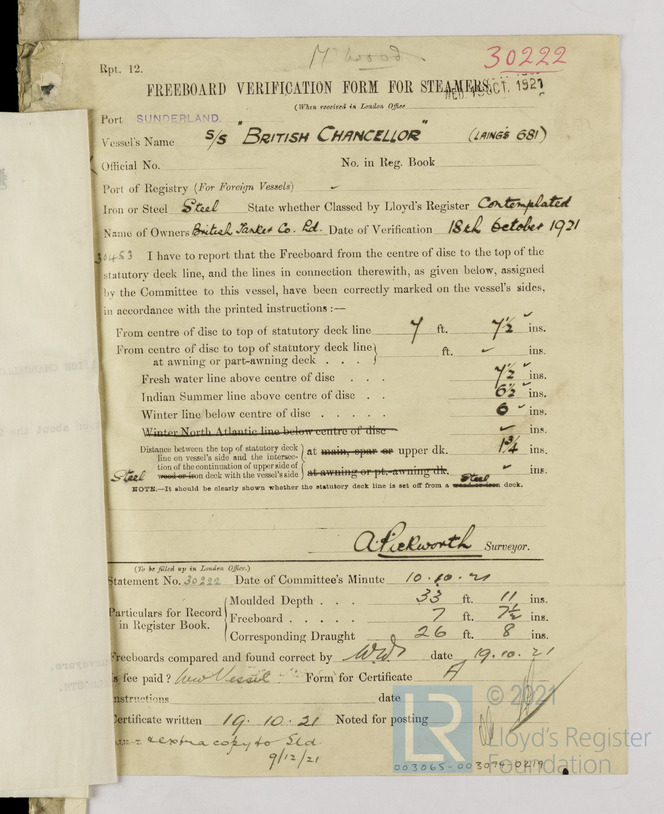 Rpt. 12.
30222
FREEBOARD VERIFICATION FORM FOR STEAMERS.
WED. 19 OCT. 1921
(When received in London Office
Port SUNDERLAND.
Vessel's Name S/S "BRITISH CHANCELLOR" (LAING'S 681)
Official No. No. in Reg. Book
Port of Registry (For Foreign Vessels)
Iron or Steel Steel State whether Classed by Lloyd's Register Contemplated
Name of Owners British Tanker Co. Ld. Date of Verification 18th October 1921
30453 I have to report that the Freeboard from the centre of disc to the top of the
statutory deck line, and the lines in connection therewith, as given below, assigned
by the Committee to this vessel, have been correctly marked on the vessel's sides,
in accordance with the printed instructions :—
From centre of disc to top of statutory deck line 7 ft. 7½ ins.
From centre of disc to top of statutory deck line
at awning or part-awning deck . . . ft. ins.
Fresh water line above centre of disc . . . 7½ ins.
Indian Summer line above centre of disc . . 6½ ins.
Winter line below centre of disc . . . . . 6 ins.
Winter North Atlantic line below centre of disc ins.
Distance between the top of statutory deck
line on vessel's side and the intersec-
tion of the continuation of upper side of
Steel wood or iron deck with the vessel's side
at main, spar or upper dk. 1¾ ins.
at awning or pt.-awning dk. ins.
Steel
NOTE.—It should be clearly shown whether the statutory deck line is set off from a wood or iron deck.
A. Pickworth Surveyor.
(To be filled up in London Office.)
Statement No. 30222 Date of Committee's Minute 10.10.21
Particulars for Record
in Register Book.
Moulded Depth . . . 33 ft. 11 ins.
Freeboard . . . . . 7 ft. 7½ ins.
Corresponding Draught 26 ft. 8 ins.
Freeboards compared and found correct by date 19.10.21
Is fee paid? New Vessel Form for Certificate A
Instructions date
Certificate written 19.10.21 Noted for posting
extra copy to Sld
9/12/21
LR © 2021
Lloyd's Register
Foundation
003065-003074-0219